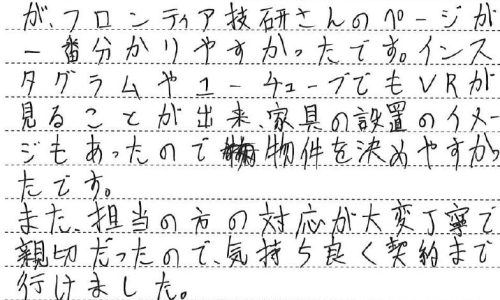 が、フロンティア技研さんのページが
一番分かりやすかったです。インス
タグラムやユーチューブでもVRが
見ることが出来、家具の設置のイメー
ジもあったので物件を決めやすかっ
たです。
また、担当の方の対応が大変丁寧で
親切だったので、気持ち良く契約まで
行けました。